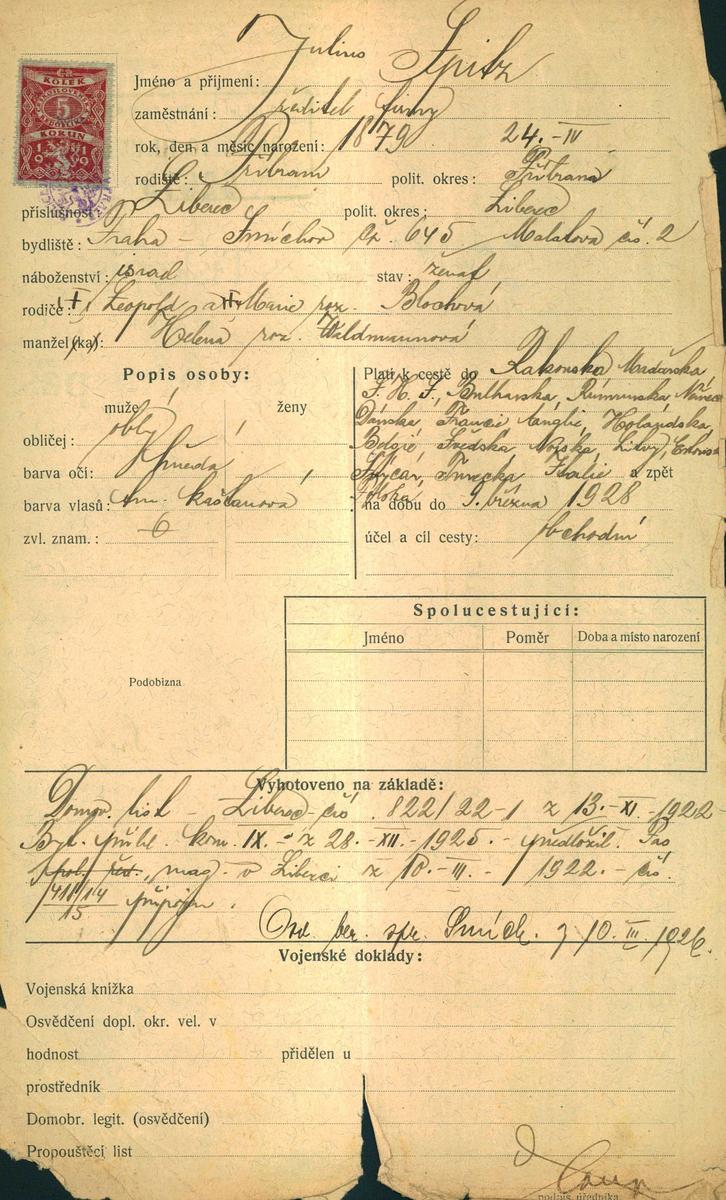 KOLEK
5
KORUN
1919
Jméno a příjmení: Julius Spitz
zaměstnání: ředitel firmy
rok, den a měsíc narození: 1879 24.-IV
rodiště: Příbram polit. okres: Příbrana
příslušnost Liberec polit. okres: Liberec
bydliště: Praha - Smíchov čp. 645 Malátova čís. 2
náboženství: israel stav: ženat
rodiče: † Leopold a † Marie roz. Blochová
manžel(ka): Helena roz. Waldmannová
Popis osoby:
muže ženy
obličej: oblý
barva očí: hněda
barva vlasů: tm. kaštanová
zvl. znam.:
Platí k cestě do Rakouska Maďarska
S. H. S., Bulharska, Rumunska, Německa
Dánska, Francie Anglie, Holandska,
Belgie, Švédska, Norska, Litvy, Estonska
Švýcar, Turecka Italie a zpět
na dobu do 9. března 1928
účel a cíl cesty: obchodní
Spolucestující:
Jméno Poměr Doba a místo narození
Podobizna
Vyhotoveno na základě:
Domov. list - Liberec čís. 822/22-1 z 13.-XI.-1922
Byt. přihl. kom. IX. - z 28.-XII.-1925.- předložil. Pas
mag. v Liberci z 10.-III.-1922.- čís.
připojen.
Osv. ber. spr. Smích. z 10. III. 1926.
Vojenské doklady:
Vojenská knížka
Osvědčení dopl. okr. vel. v
hodnost přidělen u
prostředník
Domobr. legit. (osvědčení)
Propouštěcí list
podpis úředníka